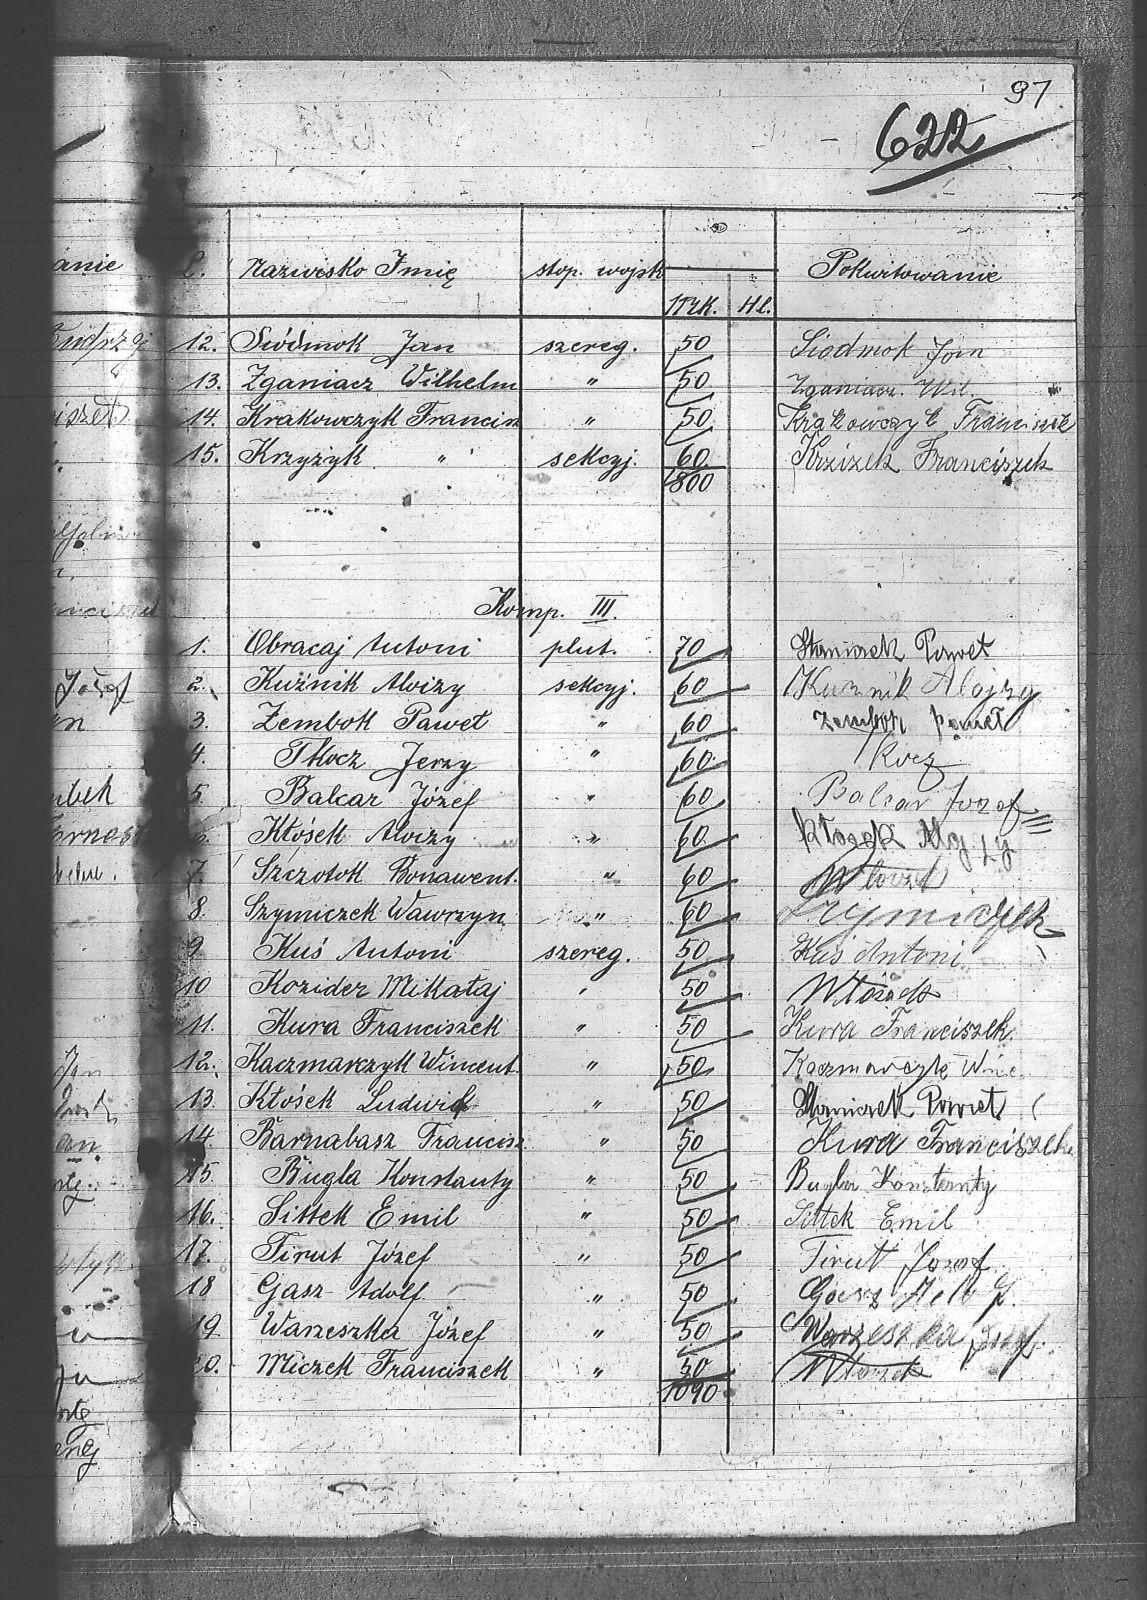 97
622
anie L. Nazwisko Imię stop. wojsk Pokwitowanie
Mk. Hl.
12. Siódmok Jan szereg. 50 Siodmok Jan
13. Zganiacz Wilhelm " 50 Zganiacz Wil
14. Krakowczyk Francisz " 50 Krakowczyk Franciszek
15. Krzyżyk " sekcyj. 60 Krzizek Franciszek
800
Komp. III.
1. Obracaj Antoni plut. 70 Staniczek Paweł
Józef 2. Kuźnik Alojzy sekcyj. 60 Kuznik Alojzy
3. Zembok Paweł " 60 Zembok Paweł
4. Tkocz Jerzy " 60 Tkocz
ubek 5. Balcar Józef " 60 Balcar Jozef
6. Kłósek Alojzy " 60 Kłosek Alojzy
7. Szczotok Bonawent. " 60 Włoszek
8. Szymiczek Wawrzyn " 60 Szymiczek
9. Kuś Antoni szereg. 50 Kuś Antoni
10 Kozider Mikałaj " 50 Włószek
11. Kura Franciszek " 50 Kura Franciszek
Jan 12. Kaczmarczyk Wincent. " 50 Kaczmarczyk Winc.
13. Kłósek Ludwik " 50 Staniczek Paweł
an. 14 Barnabasz Francisz " 50 Kura Franciszek
15 Bugla Konstanty " 50 Bugla Konstanty
16. Sittek Emil " 50 Sittek Emil
17. Tirut Józef " 50 Tirut Jozef
18 Gasz Adolf " 50 Gasz Adolf
19. Warzeszka Józef " 50 Warzeszka Józef
20. Miczek Franciszek " 50 Włoszek
1090